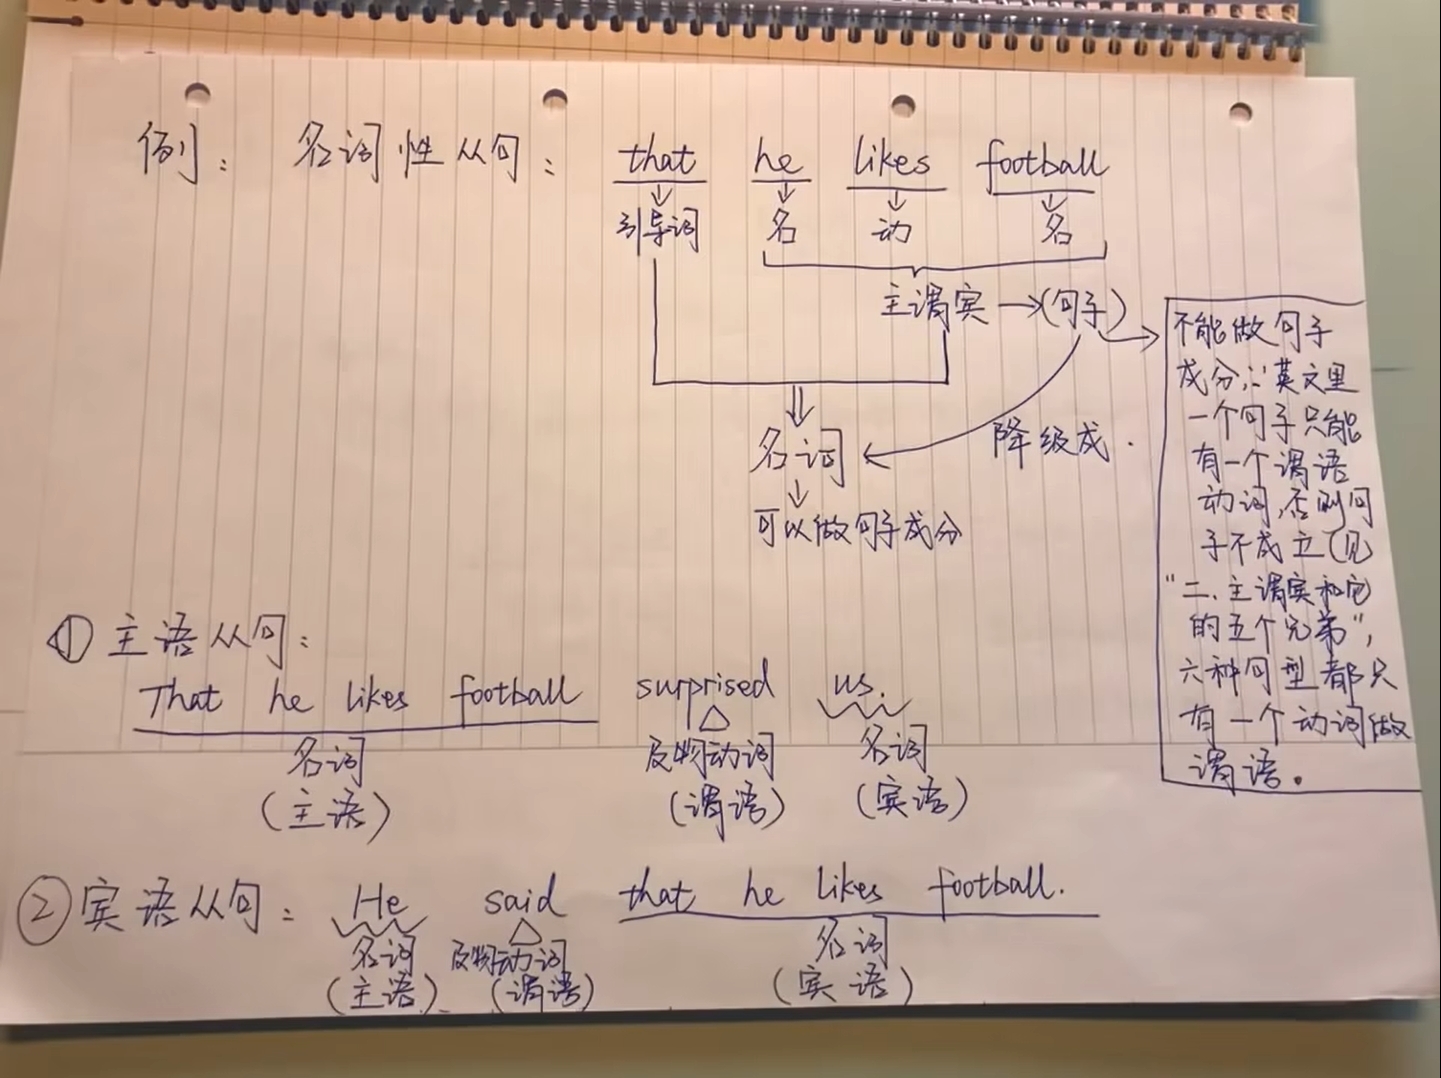 例： 名词性从句： that he likes football
引导词 名 动 名
主谓宾 →(句子)
降级成.
名词
可以做句子成分
不能做句子
成分,∵英文里
一个句子只能
有一个谓语
动词,否则句
子不成立(见
"二、主谓宾和它
的五个兄弟",
六种句型都只
有一个动词做
谓语。
① 主语从句：
That he likes football surprised us.
名词 及物动词 名词
(主语) (谓语) (宾语)
② 宾语从句： He said that he likes football.
名词 及物动词 名词
(主语) (谓语) (宾语)